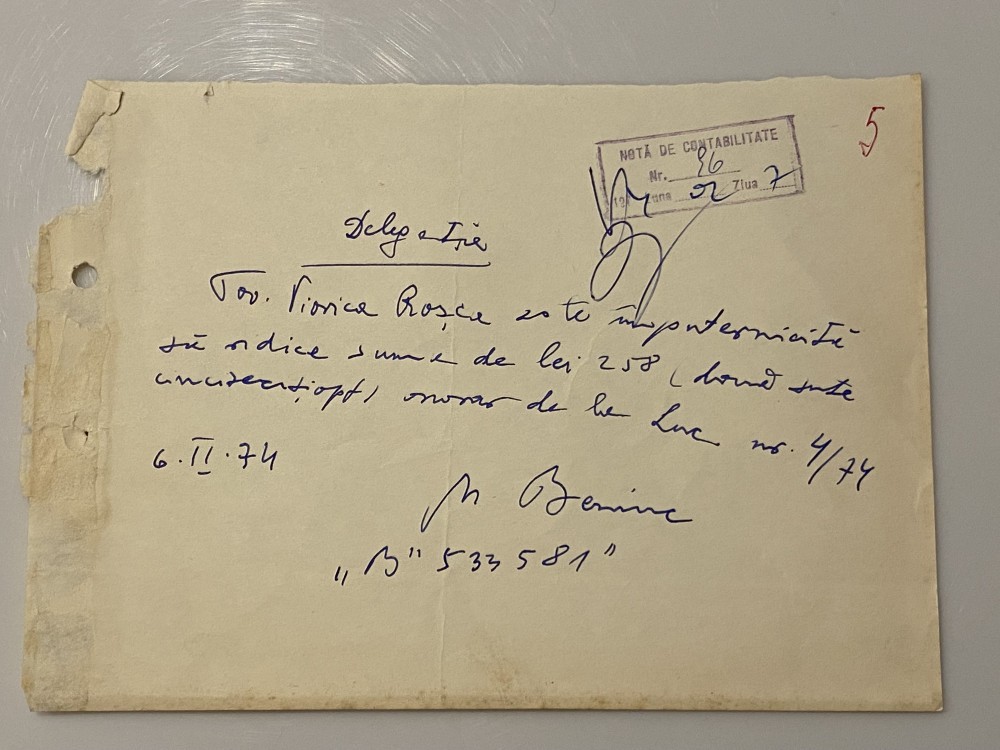 5
NOTĂ DE CONTABILITATE
Nr. 96
19 74 Luna 02 Ziua 7
Delegație
Tov. Viorica Roșca este împuternicită
să ridice suma de lei 258 (două sute
cincizecișiopt) onorar de la Luc. nr. 4/74
6.II.74
M Beniuc
„B" 533581"